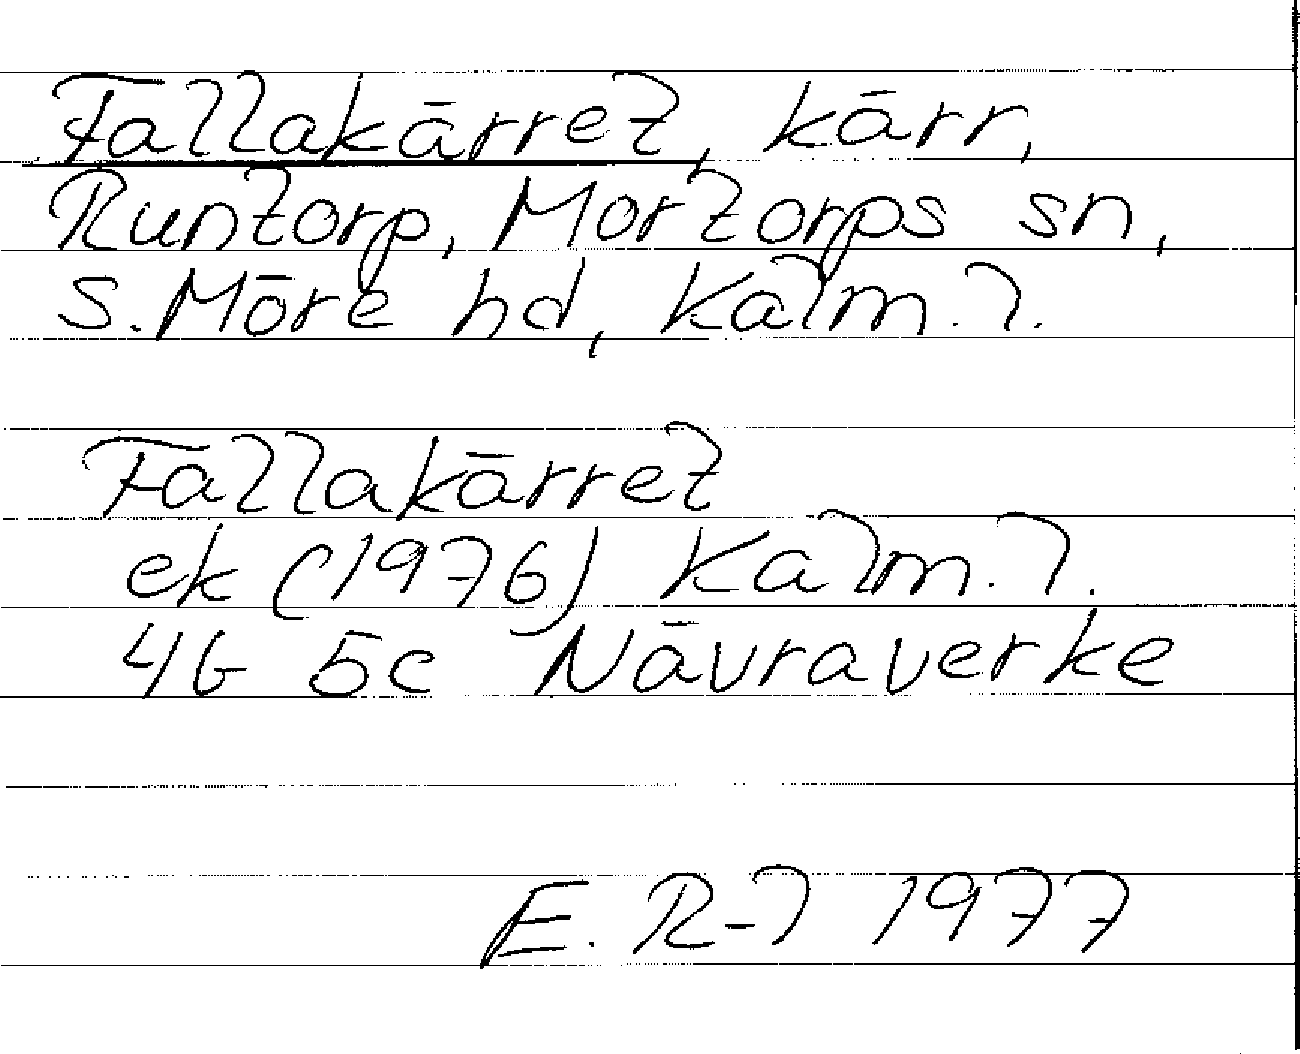 Fallakärret, kärr,
Runtorp, Mortorps sn,
S. Möre hd, Kalm. l.
Fallakärret
ek (1976) Kalm. l.
4G 5c Nävraverke
E. R-l 1977